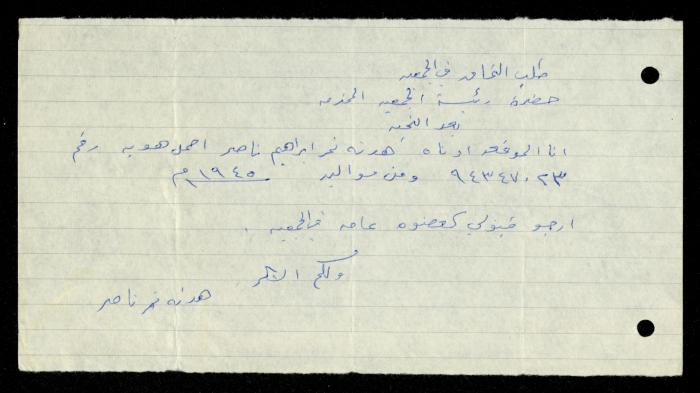 طلب التحاق في الجمعيه
حضرة رئيسة الجمعيه المحترمه
بعد التحيه
انا الموقعه ادناه هدنه نمر ابراهيم ناصر احمل هويه رقم
٩٤٣٤٧٠٢٣ ومن مواليد ١٩٤٥م
ارجو قبولي كعضوه عامه في الجمعيه .
ولكم الشكر
هدنه نمر ناصر